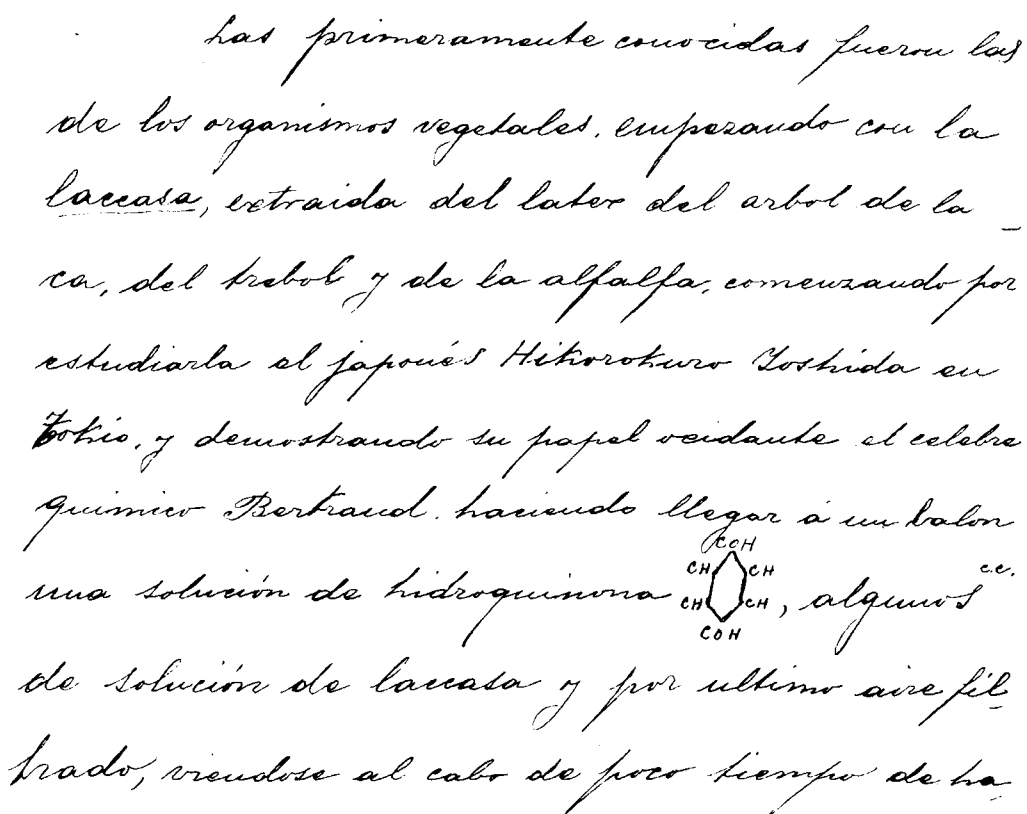 Las primeramente conocidas fueron las
de los organismos vegetales, empezando con la
laccasa, extraida del latex del arbol de la
ca, del trebol y de la alfalfa, comenzando por
estudiarla el japonés Hikorokuro Yoshida en
Tokio, y demostrando su papel oxidante el celebre
quimico Bertrand. haciendo llegar á un balon
COH
CH CH
una solución de hidroquinona , algunos c.c.
CH CH
COH
de solución de laccasa y por ultimo aire fil-
trado, viendose al cabo de poco tiempo de ha